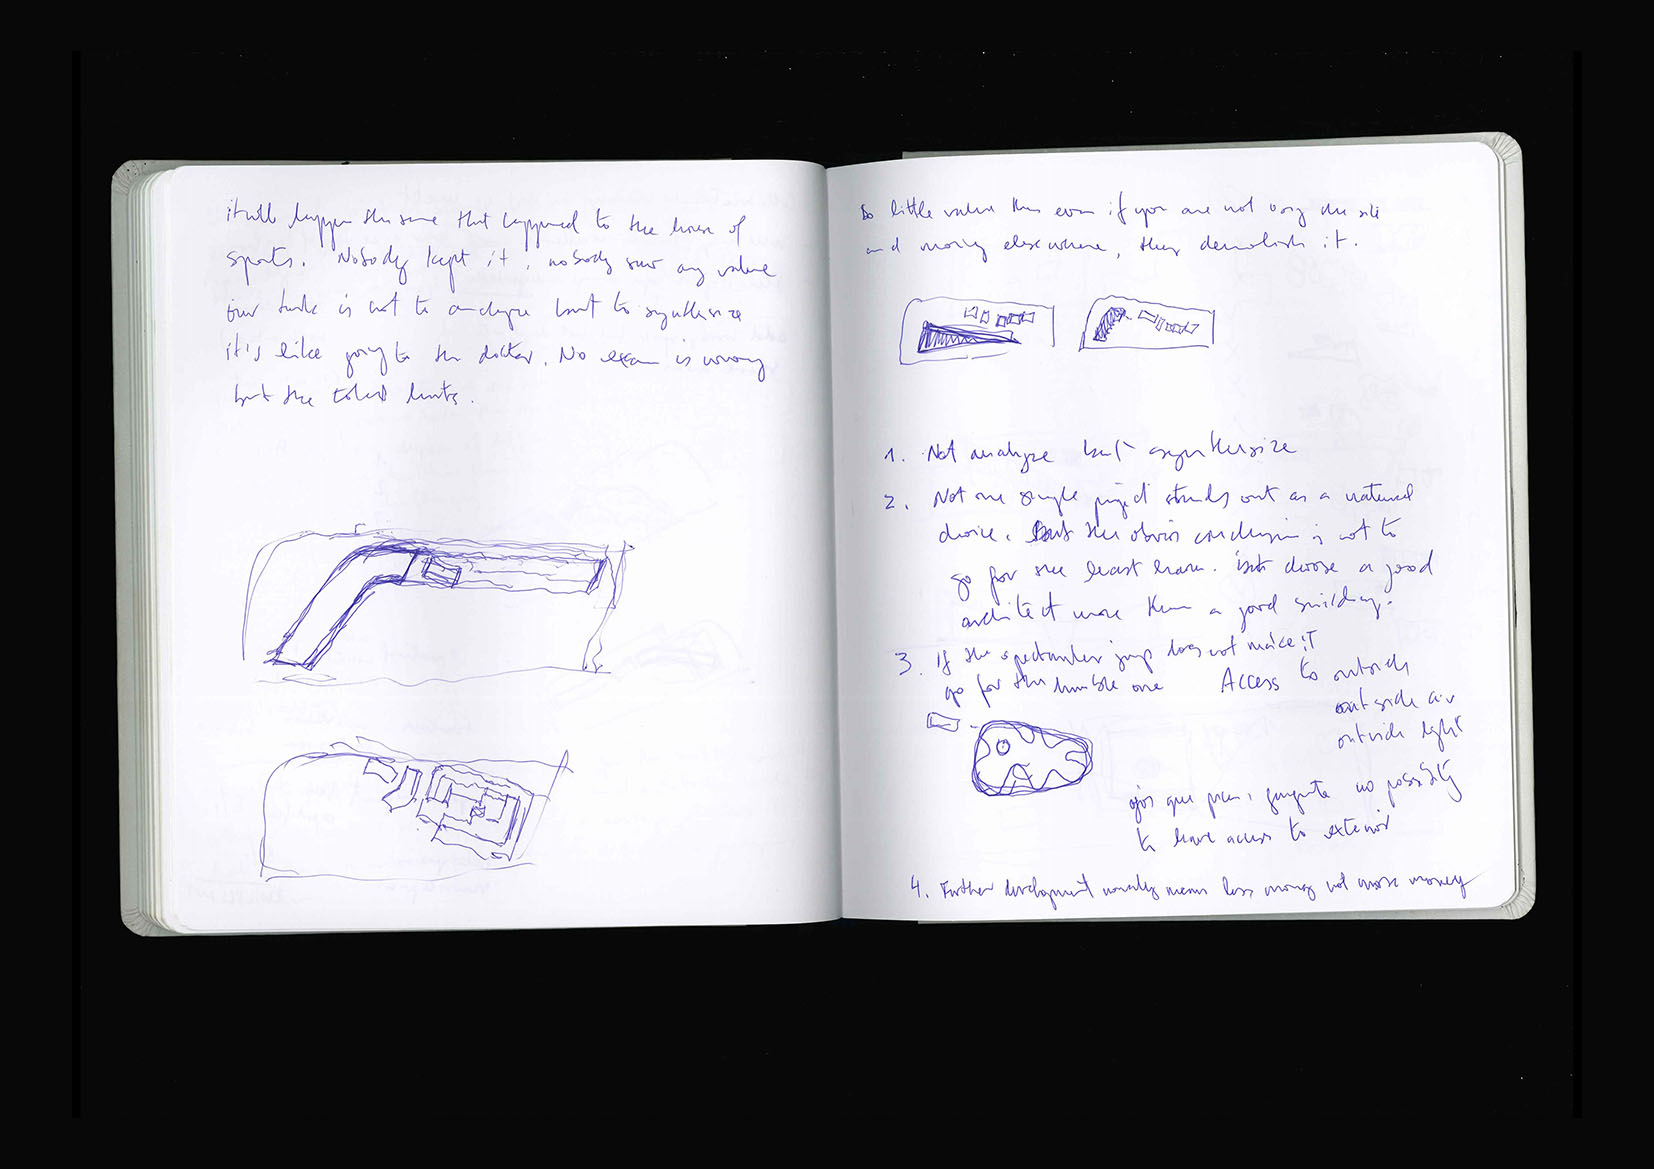 it will happen the same that happened to the house of
sports. Nobody kept it, nobody saw any value
our task is not to analyze but to synthesize
it's like going to the doctor. No exam is wrong
but the total hurts.
So little value that even if you are not using the site
and moving elsewhere, they demolish it.
1. Not analyze but synthesize
2. Not one single project stands out as a natural
choice. But the obvious conclusion is not to
go for the least harm. But choose a good
architect more than a good building.
3. If the spectacular jump does not make it
go for the humble one
Access to outside
outside air
outside light
no possibility
to have access to exterior
4. Further development usually means less money not more money